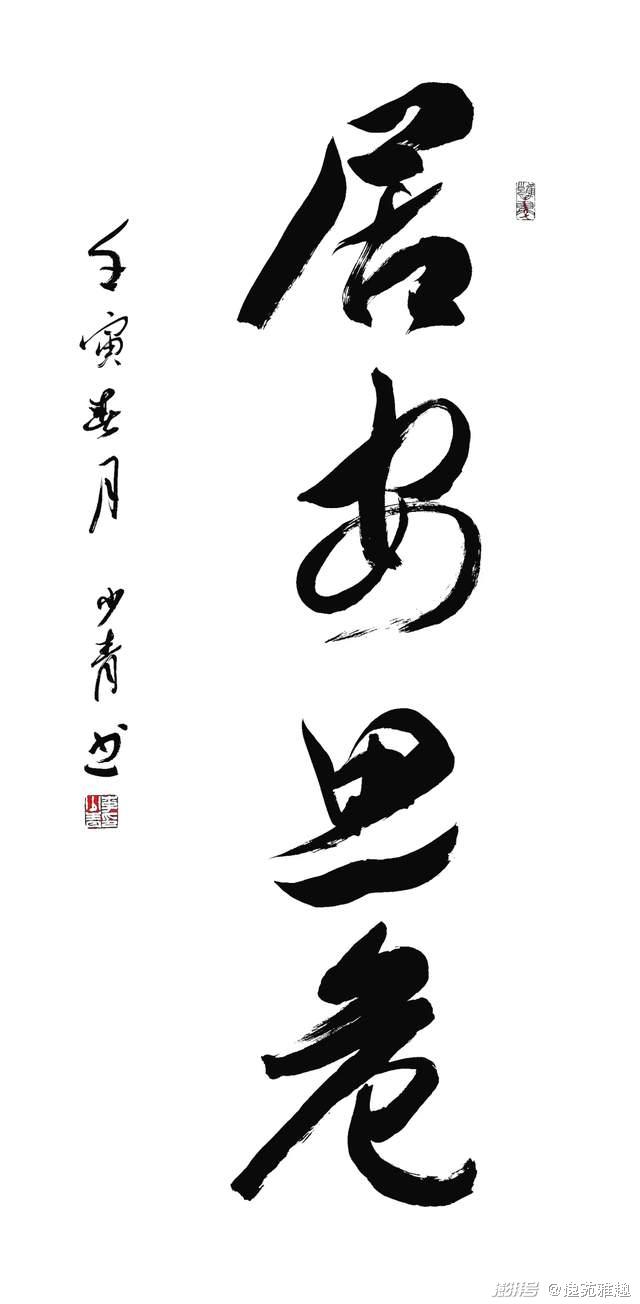 居安思危
壬寅春月 少青书
澎湃号 @逸苑雅趣